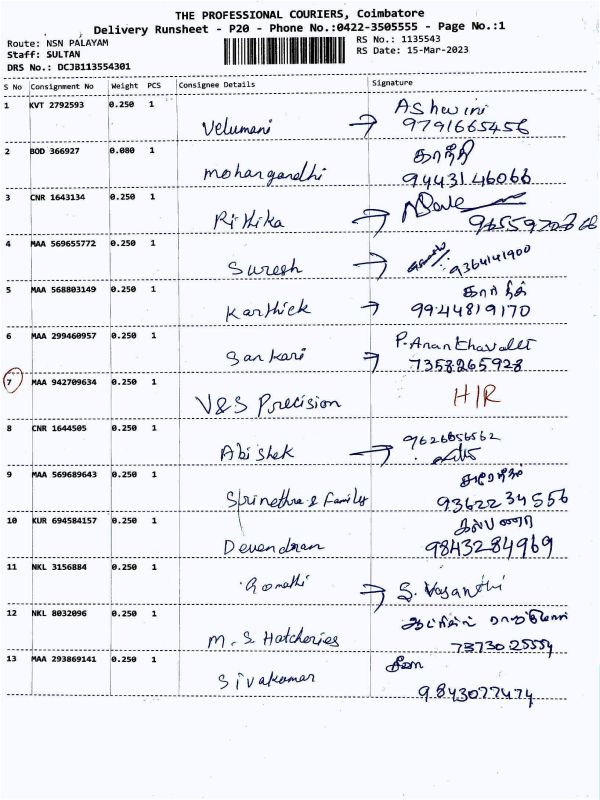 THE PROFESSIONAL COURIERS, Coimbatore
Delivery Runsheet - P20 - Phone No.:0422-3505555 - Page No.:1
Route: NSN PALAYAM
RS No.: 1135543
Staff: SULTAN
RS Date: 15-Mar-2023
DRS No.: DCJB113554301
S No Consignment No Weight PCS Consignee Details Signature
1 KVT 2792593 0.250 1 Velumani → Ashwini
9791665456
2 BOD 366927 0.080 1 காந்தி
mohangandhi 9443146066
3 CNR 1643134 0.250 1
Rithika →
4 MAA 569655772 0.250 1
Suresh → 9364141900
5 MAA 568803149 0.250 1 கார்த்திக்
Karthick → 9944819170
6 MAA 299460957 0.250 1
Sankari → 7358265928
7 MAA 942709634 0.250 1 H/R
V&S Precision
8 CNR 1644505 0.250 1 9626656562
Abishek →
9 MAA 569689643 0.250 1
Strinethra & Family 9362234556
10 KUR 694584157 0.250 1 கல்பனா
Devendran 9843284969
11 NKL 3156884 0.250 1
Gomathi → S. Vasanthi
12 NKL 8032096 0.250 1
M.S Hatcheries 7373025554
13 MAA 293869141 0.250 1
Sivakumar 9843077474